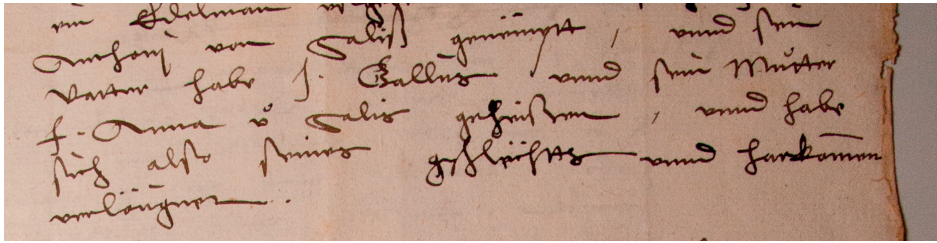 ein Edelman
Anthoni von Saliß genempt, unnd sein
Vatter habe J. Gallus unnd sein Můtter
f. Anna v̊ Salis geheissen, unnd habe
sich also seines gschlächts unnd harkom̄en
verlöugnet.